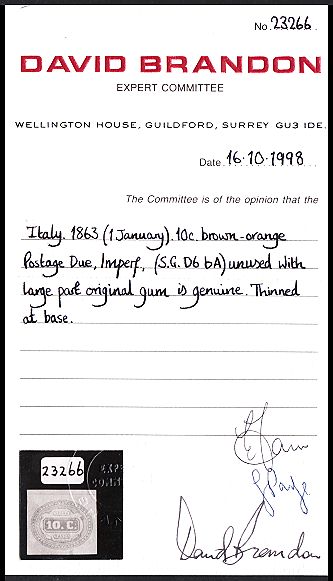 No. 23266.
DAVID BRANDON
EXPERT COMMITTEE
WELLINGTON HOUSE, GUILDFORD, SURREY GU3 1DE.
Date 16.10.1998
The Committee is of the opinion that the
Italy. 1863 (1 January). 10c. brown-orange
Postage Due, Imperf, (S.G. D6 bA) unused with
large part original gum is genuine. Thinned
at base.
23266
10. C.
David Brandon